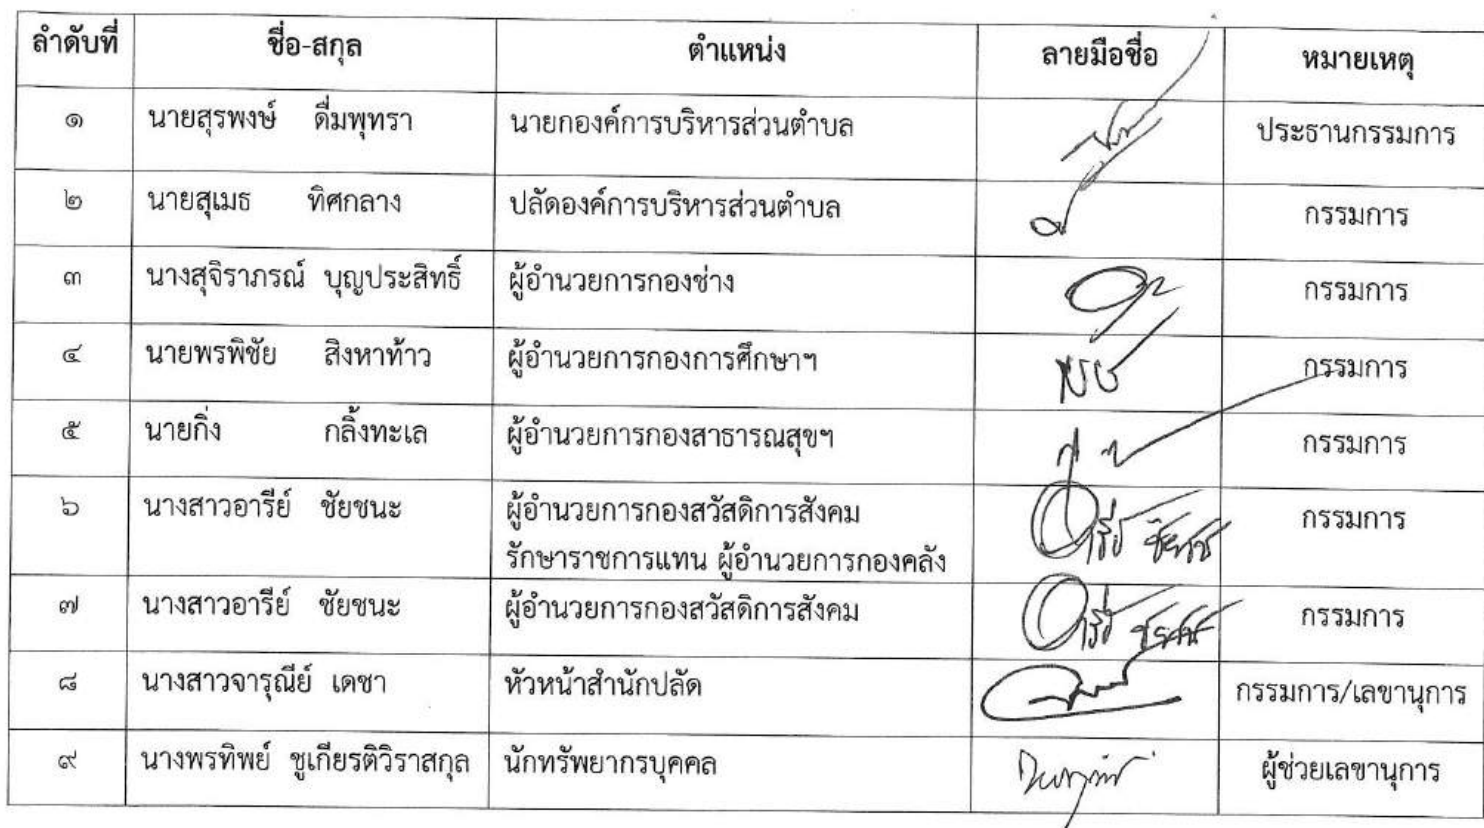 ลำดับที่ ชื่อ-สกุล ตำแหน่ง ลายมือชื่อ หมายเหตุ
๑ นายสุรพงษ์ ดื่มพุทรา นายกองค์การบริหารส่วนตำบล ประธานกรรมการ
๒ นายสุเมธ ทิศกลาง ปลัดองค์การบริหารส่วนตำบล กรรมการ
๓ นางสุจิราภรณ์ บุญประสิทธิ์ ผู้อำนวยการกองช่าง กรรมการ
๔ นายพรพิชัย สิงหาท้าว ผู้อำนวยการกองการศึกษาฯ กรรมการ
๕ นายกิ่ง กลิ้งทะเล ผู้อำนวยการกองสาธารณสุขฯ กรรมการ
๖ นางสาวอารีย์ ชัยชนะ ผู้อำนวยการกองสวัสดิการสังคม กรรมการ
รักษาราชการแทน ผู้อำนวยการกองคลัง
๗ นางสาวอารีย์ ชัยชนะ ผู้อำนวยการกองสวัสดิการสังคม กรรมการ
๘ นางสาวจารุณีย์ เดชา หัวหน้าสำนักปลัด กรรมการ/เลขานุการ
๙ นางพรทิพย์ ชูเกียรติวิราสกุล นักทรัพยากรบุคคล ผู้ช่วยเลขานุการ